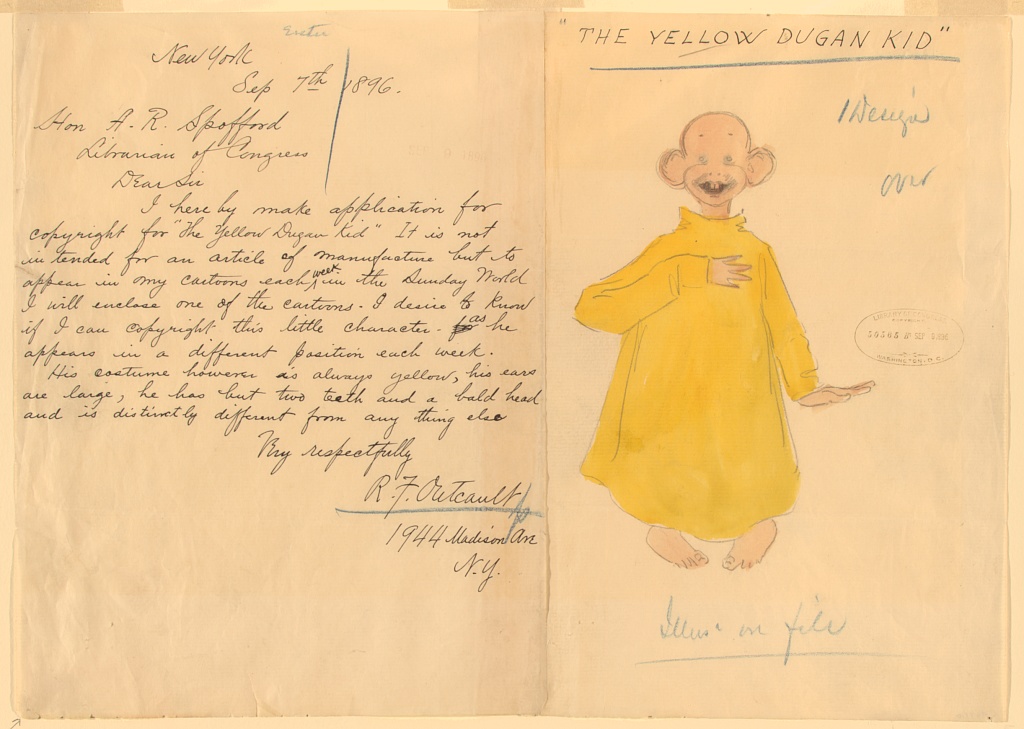 Enter
New York
Sep 7th 1896.
Hon A. R. Spofford
Librarian of Congress
Dear Sir
I here by make application for
copyright for "The Yellow Dugan Kid" It is not
intended for an article of manufacture but to
appear in my cartoons each week in the Sunday World
I will enclose one of the cartoons. I desire to know
if I can copyright this little character. as he
appears in a different position each week.
His costume however is always yellow, his ears
are large, he has but two teeth and a bald head
and is distinctly different from any thing else
Very respectfully
R. F. Outcault
1944 Madison Ave
N.Y.
"THE YELLOW DUGAN KID"
1 Design
over
LIBRARY OF CONGRESS
WASHINGTON, D.C.
Illus. on file